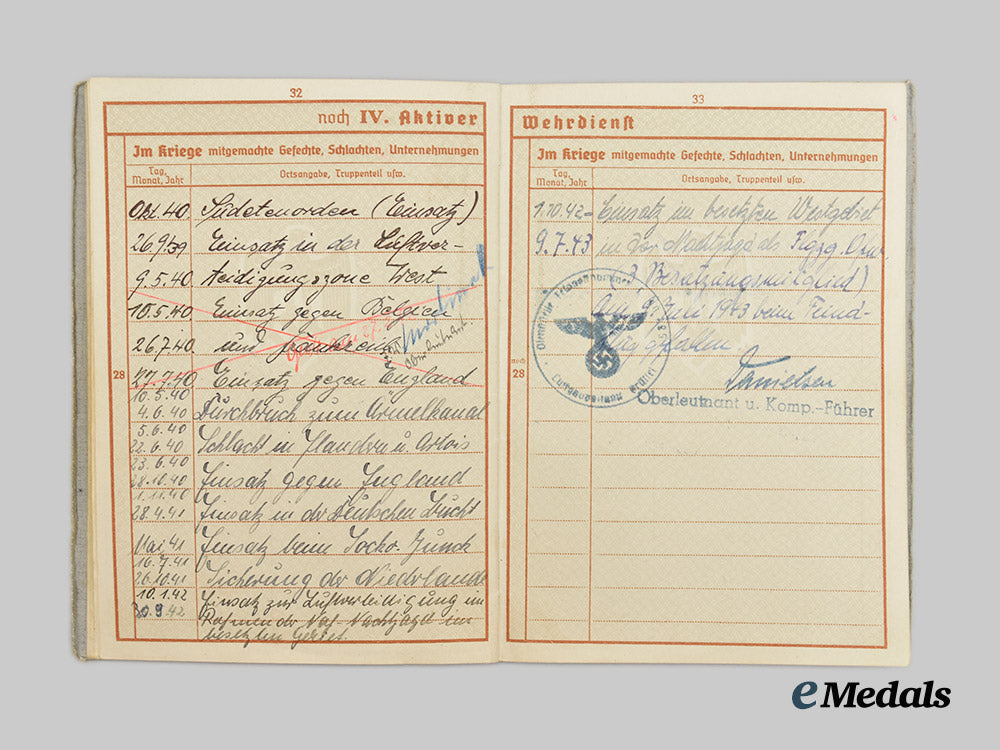 32
noch IV. Aktiver
Im Kriege mitgemachte Gefechte, Schlachten, Unternehmungen
Tag, Monat, Jahr
Ortsangabe, Truppenteil usw.
Okt. 40 Sudetenorden (Einsatz)
26.9.39 Einsatz in der Luftver-
9.5.40 teidigungszone West
10.5.40 Einsatz gegen Belgien
26.7.40 und Frankreich
28
27.7.40 Einsatz gegen England
10.5.40
4.6.40 Durchbruch zum Ärmelkanal
5.6.40
22.6.40 Schlacht in Flandern u. Artois
23.6.40
28.10.40 Einsatz gegen England
1.11.40
28.4.41 Einsatz in der Deutschen Bucht
Mai 41 Einsatz beim Sonko. Junck
16.7.41
26.10.41 Sicherung der Niederlande
10.1.42 Einsatz zur Luftverteidigung im
30.9.42 Rahmen der Nachtjagd im
besetzten Gebiet
33
Wehrdienst
Im Kriege mitgemachte Gefechte, Schlachten, Unternehmungen
Tag, Monat, Jahr
Ortsangabe, Truppenteil usw.
1.10.42 = Einsatz im besetzten Westgebiet
9.7.43 in der Nachtjagd als
Besatzungsmitglied)
Am 9. Juli 1943 beim Feind-
flug gefallen.
noch
28
Danielsen
Oberleutnant u. Komp.-Führer
eMedals